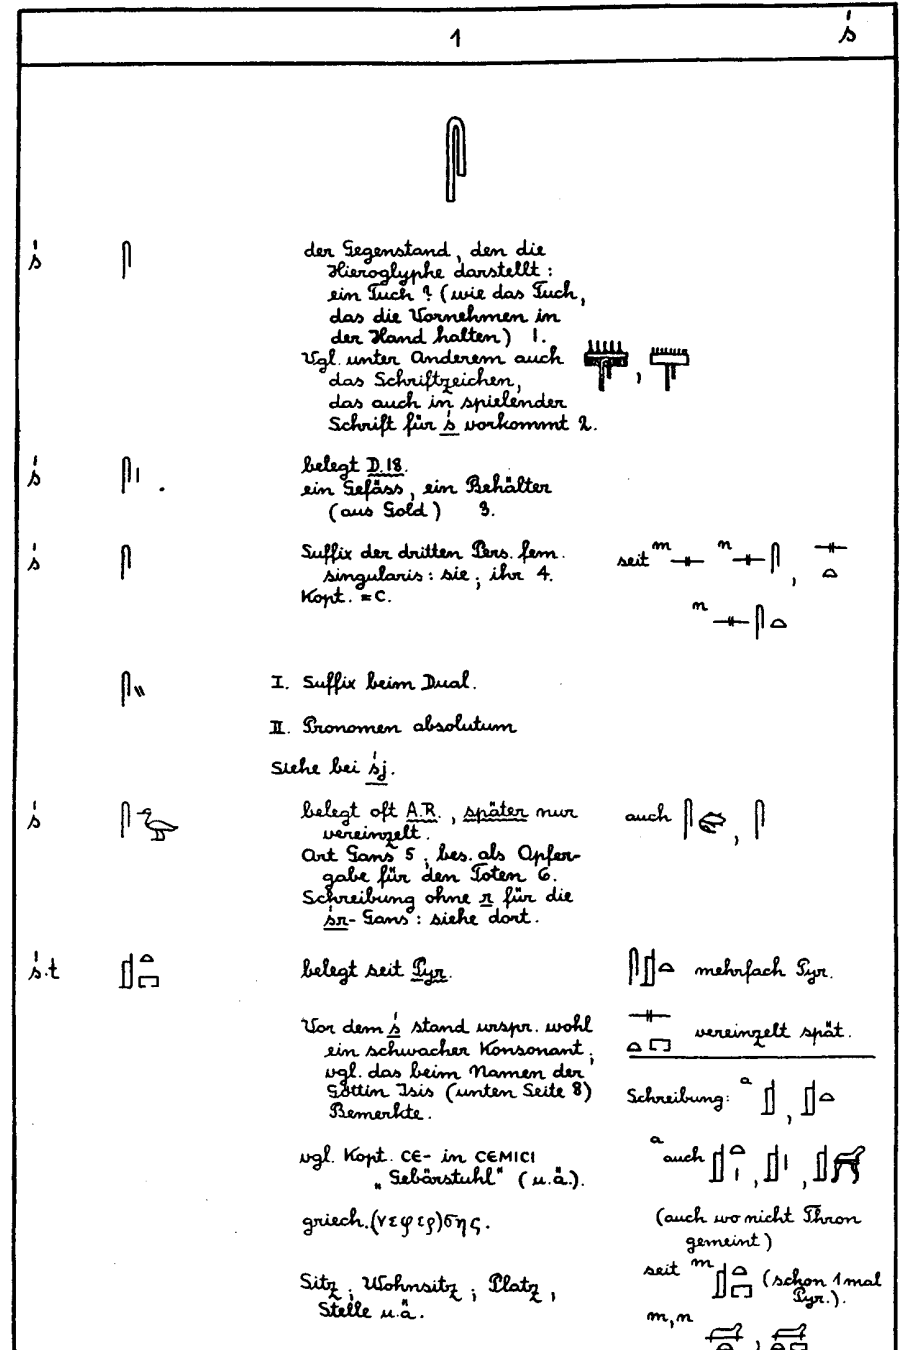 1 ś
𓋴
ś 𓋴 der Gegenstand, den die
Hieroglyphe darstellt:
ein Tuch? (wie das Tuch,
das die Vornehmen in
der Hand halten) 1.
Vgl. unter Anderem auch
das Schriftzeichen, ,
das auch in spielender
Schrift für ś vorkommt 2.
ś 𓋴𓏤 . belegt D.18.
ein Gefäss, ein Behälter
(aus Gold) 3.
ś 𓋴 Suffix der dritten Pers. fem. seit m 𓊃 n 𓊃𓋴, 𓊃𓏏
singularis: sie; ihr 4.
Kopt. =C. n 𓊃𓋴𓏏
𓋴𓏭 I. Suffix beim Dual.
II. Pronomen absolutum
Siehe bei śj.
ś 𓋴𓅬 belegt oft A.R., später nur auch 𓋴, 𓋴
vereinzelt.
Art Gans 5; bes. als Opfer-
gabe für den Toten 6.
Schreibung ohne r für die
śr-Gans: siehe dort.
ś.t 𓊨𓏏𓉐 belegt seit Pyr. 𓋴𓊨𓏏 mehrfach Pyr.
Vor dem ś stand urspr. wohl 𓊃𓏏𓉐 vereinzelt spät.
ein schwacher Konsonant;
vgl. das beim Namen der
Göttin Isis (unten Seite 8) Schreibung: a 𓊨, 𓊨𓏏
Bemerkte.
vgl. Kopt. CE- in CEMICI a auch 𓊨𓏏𓏤, 𓊨𓏤, 𓊨
„Gebärstuhl" (u.ä.).
griech. (νεφερ)σης. (auch wo nicht Thron
gemeint)
Sitz; Wohnsitz; Platz, seit m 𓊨𓏏𓉐 (schon 1mal
Stelle u.ä. Pyr.).
m,n